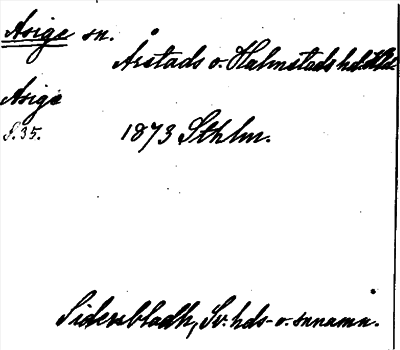 Asige sn.
Årstads o. Halmstads hd. Hld.
Asige
S. 35.
1873 Sthlm.
Sidenbladh, Sv. hds- o. snnamn.